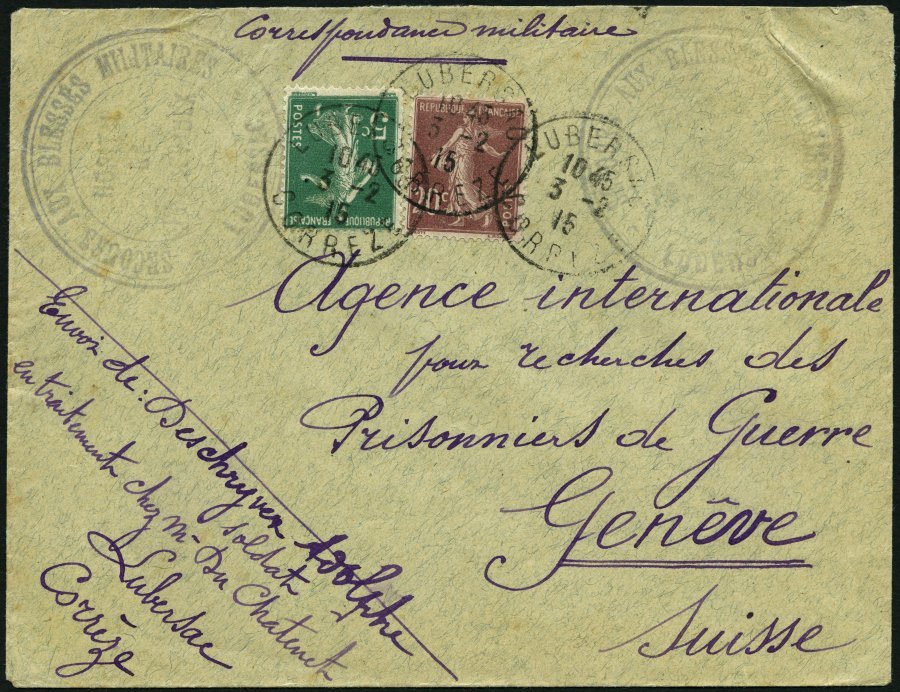 Correspondance militaire
SECOURS AUX BLESSÉS MILITAIRES
AUX BLESSÉS
POSTES
5c
REPUBLIQUE FRANÇAISE
REPUBLIQUE FRANÇAISE
10c
POSTES
LUBERSAC
10 45
3 -2
15
CORREZE
LUBERSAC
10 45
3 -2
15
CORREZE
LUBERSAC
10 45
3 -2
15
CORREZE
Agence internationale
pour recherches des
Prisonniers de Guerre
Genêve
Suisse
Envoi de: Deschryver Adolphe
soldat
en traitement chez M- Du Chatenet
Lubersac
Corrèze